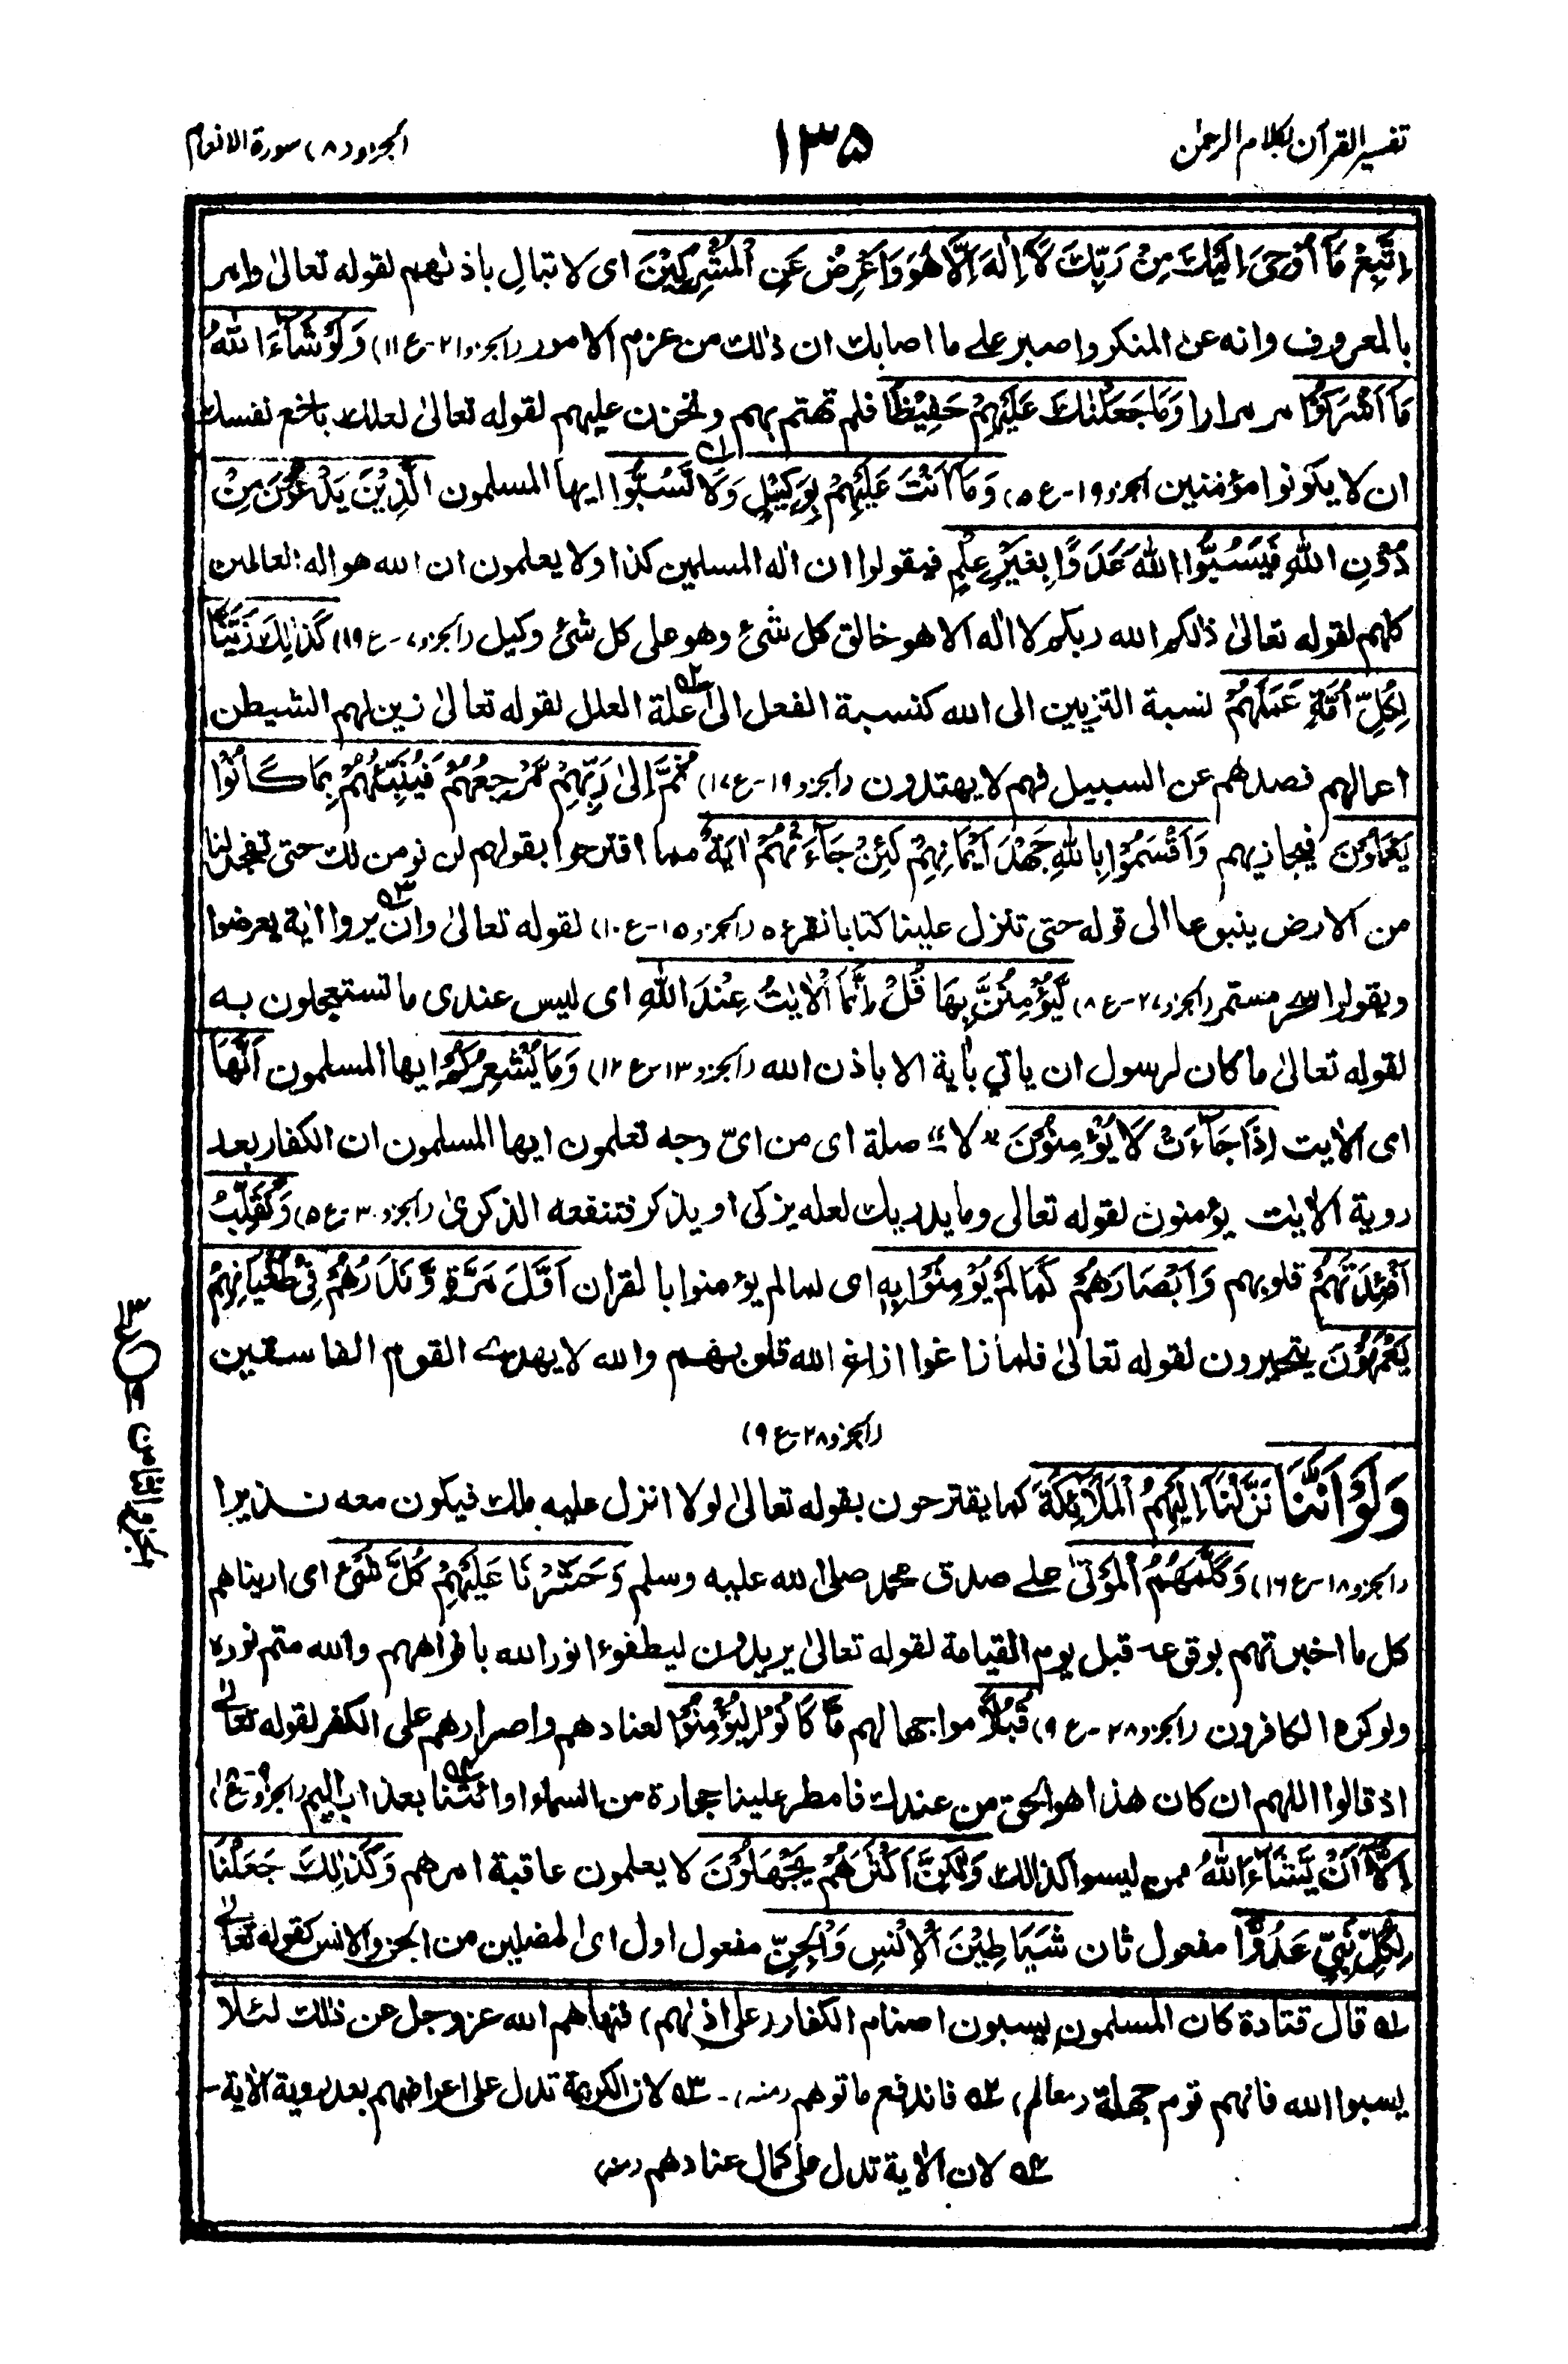 تفسير القرآن بكلام الرحمن
١٣٥
الجزو (٨) سورة الانعام
اِتَّبِعْ مَآ اُوْحِيَ اِلَيْكَ مِنْ رَبِّكَ لَآ اِلٰهَ اِلَّا هُوَ وَاَعْرِضْ عَنِ الْمُشْرِكِيْنَ اى لا تبالِ باذٰىهم لقوله تعالىٰ وامر
بالمعروف وانه عن المنكر واصبر على ما اصابك ان ذٰلك من عزم الامور (الجزو ٢١-ع ١١) وَلَوْ شَآءَ اللهُ
مَآ اَشْرَكُوْا مر مرارا وَمَا جَعَلْنٰكَ عَلَيْهِمْ حَفِيْظًا فلم تهتم بهم وتحزن عليهم لقوله تعالىٰ لعلك باخع نفسك
ان لا يكونوا مؤمنين (الجزو ١٩-ع ٥) وَمَآ اَنْتَ عَلَيْهِمْ بِوَكِيْلٍ وَلَا تَسُبُّوا ٥١ ايها المسلمون الَّذِيْنَ يَدْعُوْنَ مِنْ
دُوْنِ اللهِ فَيَسُبُّوا اللهَ عَدْوًا بِغَيْرِ عِلْمٍ فيقولوا ان الٰه المسلمين كذا ولا يعلمون ان الله هو الٰه العالمين
كلهم لقوله تعالىٰ ذٰلكم الله ربكم لا الٰه الا هو خالق كل شئ وهو على كل شئ وكيل (الجزو ٧-ع ١٩) كَذٰلِكَ زَيَّنَّا
لِكُلِّ اُمَّةٍ عَمَلَهُمْ نسبة التزيين الى الله كنسبة الفعل الىٰ ٥٢ علة العلل لقوله تعالىٰ زين لهم الشيطن
اعمالهم فصدهم عن السبيل فهم لا يهتدون (الجزو ١٩-ع ١٧) ثُمَّ اِلىٰ رَبِّهِمْ مَّرْجِعُهُمْ فَيُنَبِّئُهُمْ بِمَا كَانُوْا
يَعْمَلُوْنَ فيجازيهم وَاَقْسَمُوْا بِاللهِ جَهْدَ اَيْمَانِهِمْ لَئِنْ جَآءَتْهُمْ اٰيَةٌ مما اقترحوا بقولهم لن نومن لك حتى تفجر لنا
من الارض ينبوعا الى قوله حتى تنزل علينا كتابا نقرءه (الجزو ١٥-ع ١٠) لقوله تعالىٰ وان ٥٣ يروا اٰية يعرضوا
ويقولوا سحر مستمر (الجزو ٢٧-ع ٨) لَّيُؤْمِنُنَّ بِهَا قُلْ اِنَّمَا الْاٰيٰتُ عِنْدَ اللهِ اى ليس عندى ما تستعجلون به
لقوله تعالىٰ ما كان لرسول ان ياتي بأية الا باذن الله (الجزو ١٣-ع ١٢) وَمَا يُشْعِرُكُمْ ايها المسلمون اَنَّهَا
اى الاٰيت اِذَا جَآءَتْ لَا يُؤْمِنُوْنَ "لا" صلة اى من اىّ وجه تعلمون ايها المسلمون ان الكفار بعد
روية الاٰيت يؤمنون لقوله تعالى وما يدريك لعله يزكى او يذكر فتنفعه الذكرىٰ (الجزو ٣٠-ع ٥) وَنُقَلِّبُ
اَفْئِدَتَهُمْ قلوبهم وَاَبْصَارَهُمْ كَمَا لَمْ يُؤْمِنُوْا بِهٖ اى لما لم يؤمنوا بالقران اَوَّلَ مَرَّةٍ وَّنَذَرُهُمْ فِيْ طُغْيَانِهِمْ
يَعْمَهُوْنَ يتحيرون لقوله تعالىٰ فلما زاغوا ازاغ الله قلوبهم والله لا يهدى القوم الفاسقين
(الجزو ٢٨-ع ٩)
وَلَوْ اَنَّنَا نَزَّلْنَآ اِلَيْهِمُ الْمَلٰٓئِكَةَ كما يقترحون بقوله تعالىٰ لولا انزل عليه ملك فيكون معه نذيرا
(الجزو ١٨-ع ١٦) وَكَلَّمَهُمُ الْمَوْتىٰ على صدق محمد صلى الله عليه وسلم وَحَشَرْنَا عَلَيْهِمْ كُلَّ شَيْءٍ اى اريناهم
كل ما اخبرتهم بوقوعه قبل يوم القيامة لقوله تعالىٰ يريدون ليطفوءا نور الله بافواههم والله متم نوره
ولو كره الكافرون (الجزو ٢٨-ع ٩) قُبُلًا مواجها لهم مَّا كَانُوْا لِيُؤْمِنُوْا لعنادهم واصرارهم على الكفر لقوله تعالىٰ
اذ قالوا اللهم ان كان هذا هو الحق من عندك فامطر علينا حجارة من السماء او ائتنا ٥٤ بعذاب اليم (الجزو ٩-ع ١٨)
اِلَّآ اَنْ يَّشَآءَ اللهُ ممن ليسوا كذالك وَلٰكِنَّ اَكْثَرَهُمْ يَجْهَلُوْنَ لا يعلمون عاقبة امرهم وَكَذٰلِكَ جَعَلْنَا
لِكُلِّ نَبِيٍّ عَدُوًّا مفعول ثان شَيَاطِيْنَ الْاِنْسِ وَالْجِنِّ مفعول اول اى المضلين من الجن والانس كقوله تعالىٰ
٥١ قال قتادة كان المسلمون يسبون اصنام الكفار (على اذٰىهم) فنهاهم الله عزوجل عن ذٰلك لئلا
يسبوا الله فانهم قوم جهلة (معالم) ٥٢ فاندفع ما توهم (منه) - ٥٣ لان الكريمة تدل على اعراضهم بعد روية الاٰية -
٥٤ لان الاٰية تدل على كمال عنادهم (منه)
الجزو الثامن